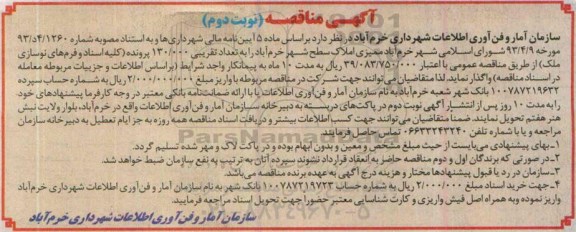 آگهی مناقصه (نوبت دوم)
سازمان آمار و فن آوری اطلاعات شهرداری خرم آباد در نظر دارد براساس ماده ۵ آیین نامه مالی شهرداری ها و به استناد مصوبه شماره ۴/۱۲۶۰/د/۹۳
مورخه ۹۳/۴/۹ شورای اسلامی شهر خرم آباد ممیزی املاک سطح شهر خرم آباد را به تعداد تقریبی ۱۳۰/۰۰۰ پرونده (کلیه اسناد و فرم های نوسازی
ملک) از طریق مناقصه عمومی با اعتبار ۳۹/۰۸۳/۷۵۰/۰۰۰ ریال به مدت ۱۰ ماه به پیمانکار واجد شرایط (براساس اطلاعات و جزییات مربوطه معامله
در اسناد مناقصه) واگذار نماید. لذا متقاضیان می توانند جهت شرکت در مناقصه مربوطه با واریز مبلغ ۲/۰۰۰/۰۰۰/۰۰۰ ریال به شماره حساب سپرده
۱۰۰۷۸۷۲۱۹۶۳۲ بانک شهر شعبه خرم آباد به نام سازمان آمار و فن آوری اطلاعات یا با ارائه ضمانت نامه بانکی معتبر در وجه کارفرما پیشنهادهای خود
را به مدت ۱۰ روز پس از انتشار آگهی نوبت دوم در پاکت های دربسته به دبیرخانه سازمان آمار و فن آوری اطلاعات واقع در خرم آباد، بلوار ولایت نبش
هنر هفتم تحویل نمایند. ضمناً متقاضیان می توانند جهت کسب اطلاعات بیشتر و دریافت اسناد مناقصه همه روزه به جز ایام تعطیل به دبیرخانه سازمان
مراجعه و یا با شماره تلفن ۰۶۶۳۳۲۴۳۲۴۰ تماس حاصل فرمایند.
۱- بهای پیشنهادی می بایست از حیث مبلغ مشخص و معین و بدون ابهام بوده و در پاکت لاک و مهر شده تسلیم گردد.
۲- در صورتی که برندگان اول و دوم مناقصه حاضر به انعقاد قرارداد نشوند سپرده آنان به ترتیب به نفع سازمان ضبط خواهد شد.
۳- سازمان در رد یا قبول پیشنهادها مختار و هزینه درج آگهی به عهده برنده مناقصه می باشد.
۴- جهت خرید اسناد مبلغ ۲/۰۰۰/۰۰۰ ریال به شماره حساب ۱۰۰۷۸۷۲۱۹۷۲۳ بانک شهر به نام سازمان آمار و فن آوری اطلاعات شهرداری خرم آباد
واریز نموده و به همراه اصل فیش واریزی و کارت شناسایی معتبر حضوراً جهت تحویل اسناد مراجعه فرمایید.
سازمان آمار و فن آوری اطلاعات شهرداری خرم آباد